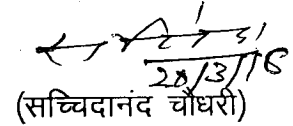 28/3/16
(सच्चिदानंद चौधरी)